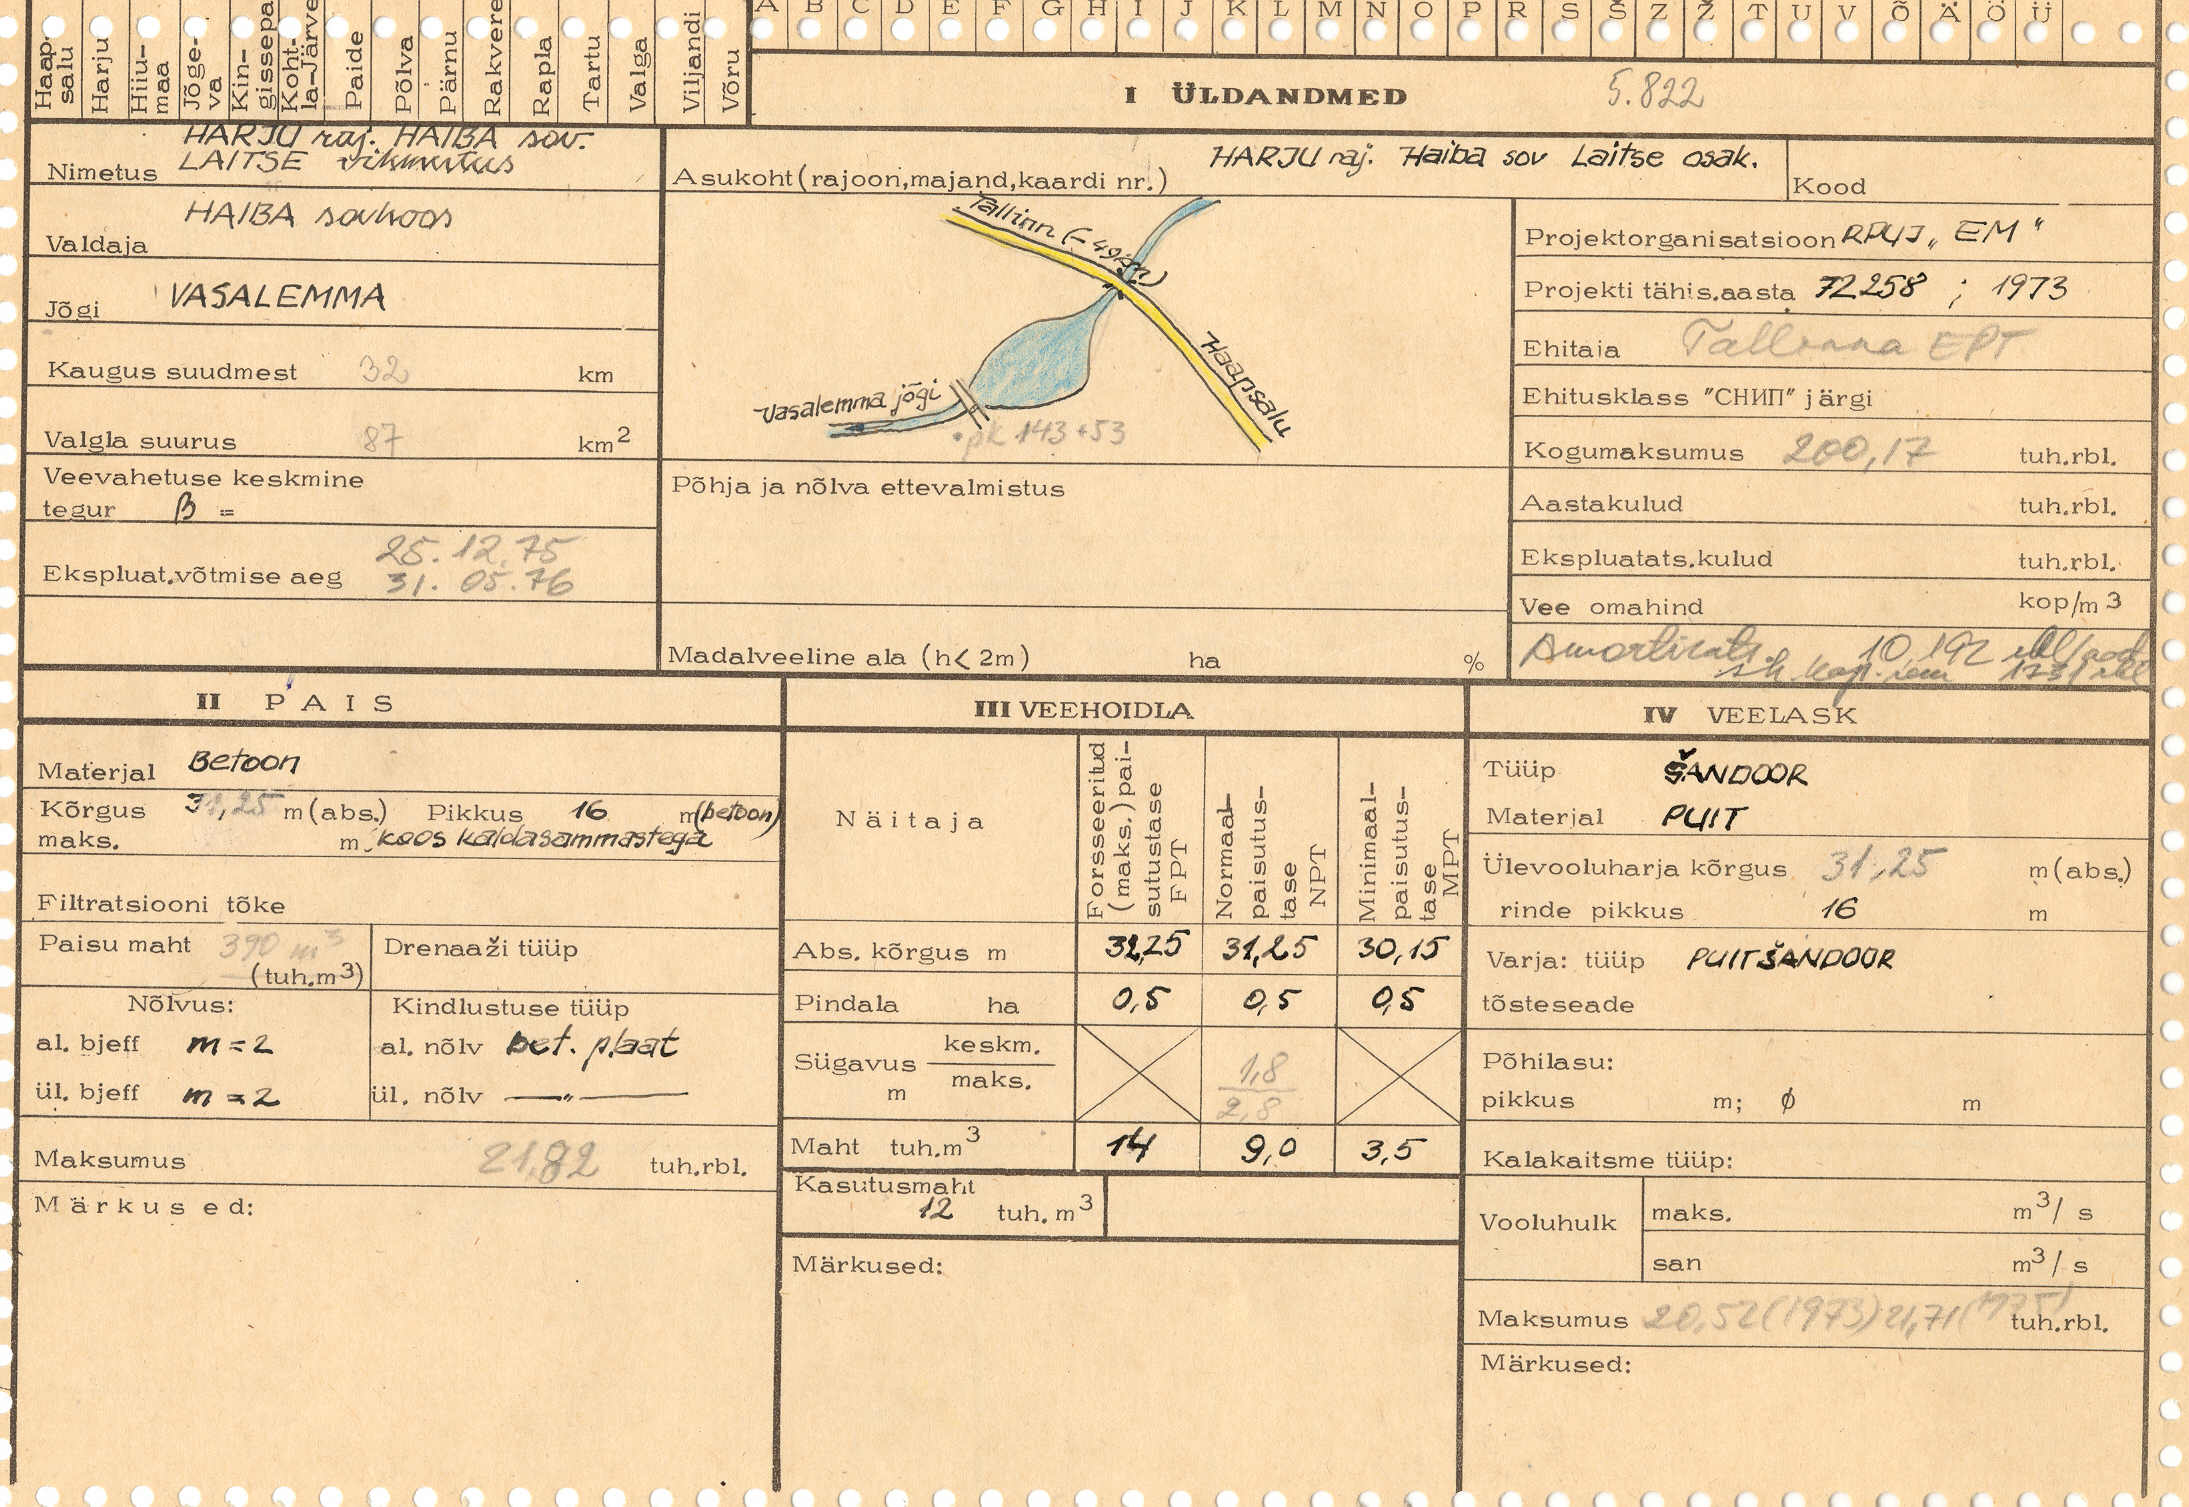 A B C D E F G H I J K L M N O P R S Š Z Ž T U V Õ Ä Ö Ü
Haap-salu Harju Hiiu-maa Jõge-va Kin-gissepa Koht-la-Järve Paide Põlva Pärnu Rakvere Rapla Tartu Valga Viljandi Võru
I ÜLDANDMED 5.822
HARJU raj. HAIBA sov.
Nimetus LAITSE
Asukoht (rajoon, majand, kaardi nr.) HARJU raj. Haiba sov Laitse osak.
Kood
Valdaja HAIBA sovhoos
Jõgi VASALEMMA
Kaugus suudmest 32 km
Valgla suurus 87 km2
Veevahetuse keskmine
tegur β =
25.12.75
Ekspluat.võtmise aeg 31.05.76
Tallinn (- 49km)
Haapsalu
Vasalemma jõgi
pk 143+53
Põhja ja nõlva ettevalmistus
Madalveeline ala (h< 2m) ha %
Projektorganisatsioon RPUI „EM"
Projekti tähis.aasta 72258 ; 1973
Ehitaja Tallinna EPT
Ehitusklass "СНИП" järgi
Kogumaksumus 200,17 tuh.rbl.
Aastakulud tuh.rbl.
Ekspluatats.kulud tuh.rbl.
Vee omahind kop/m3
Amortisats. 10,192
sh. kap. rem 1731 rbl
II PAIS
Materjal Betoon
Kõrgus 31,25 m (abs.) Pikkus 16 m (betoon)
maks. m koos kaldasammastega
Filtratsiooni tõke
Paisu maht 390 m3
(tuh.m3)
Drenaaži tüüp
Nõlvus:
al. bjeff m = 2
ül. bjeff m = 2
Kindlustuse tüüp
al. nõlv bet. plaat
ül. nõlv —"—
Maksumus 21,82 tuh.rbl.
Märkused:
III VEEHOIDLA
Näitaja
Forsseeritud (maks.) pai-sutustase FPT
Normaal-paisutus-tase NPT
Minimaal-paisutus-tase MPT
Abs. kõrgus m 32,25 31,25 30,15
Pindala ha 0,5 0,5 0,5
Sügavus m keskm. maks. 1,8 2,8
Maht tuh.m3 14 9,0 3,5
Kasutusmaht
12 tuh. m3
Märkused:
IV VEELASK
Tüüp ŠANDOOR
Materjal PUIT
Ülevooluharja kõrgus 31,25 m (abs.)
rinde pikkus 16 m
Varja: tüüp PUITŠANDOOR
tõsteseade
Põhilasu:
pikkus m; ϕ m
Kalakaitsme tüüp:
Vooluhulk maks. m3/ s
san m3/ s
Maksumus 20,52 (1973) 21,71 (1975) tuh.rbl.
Märkused: